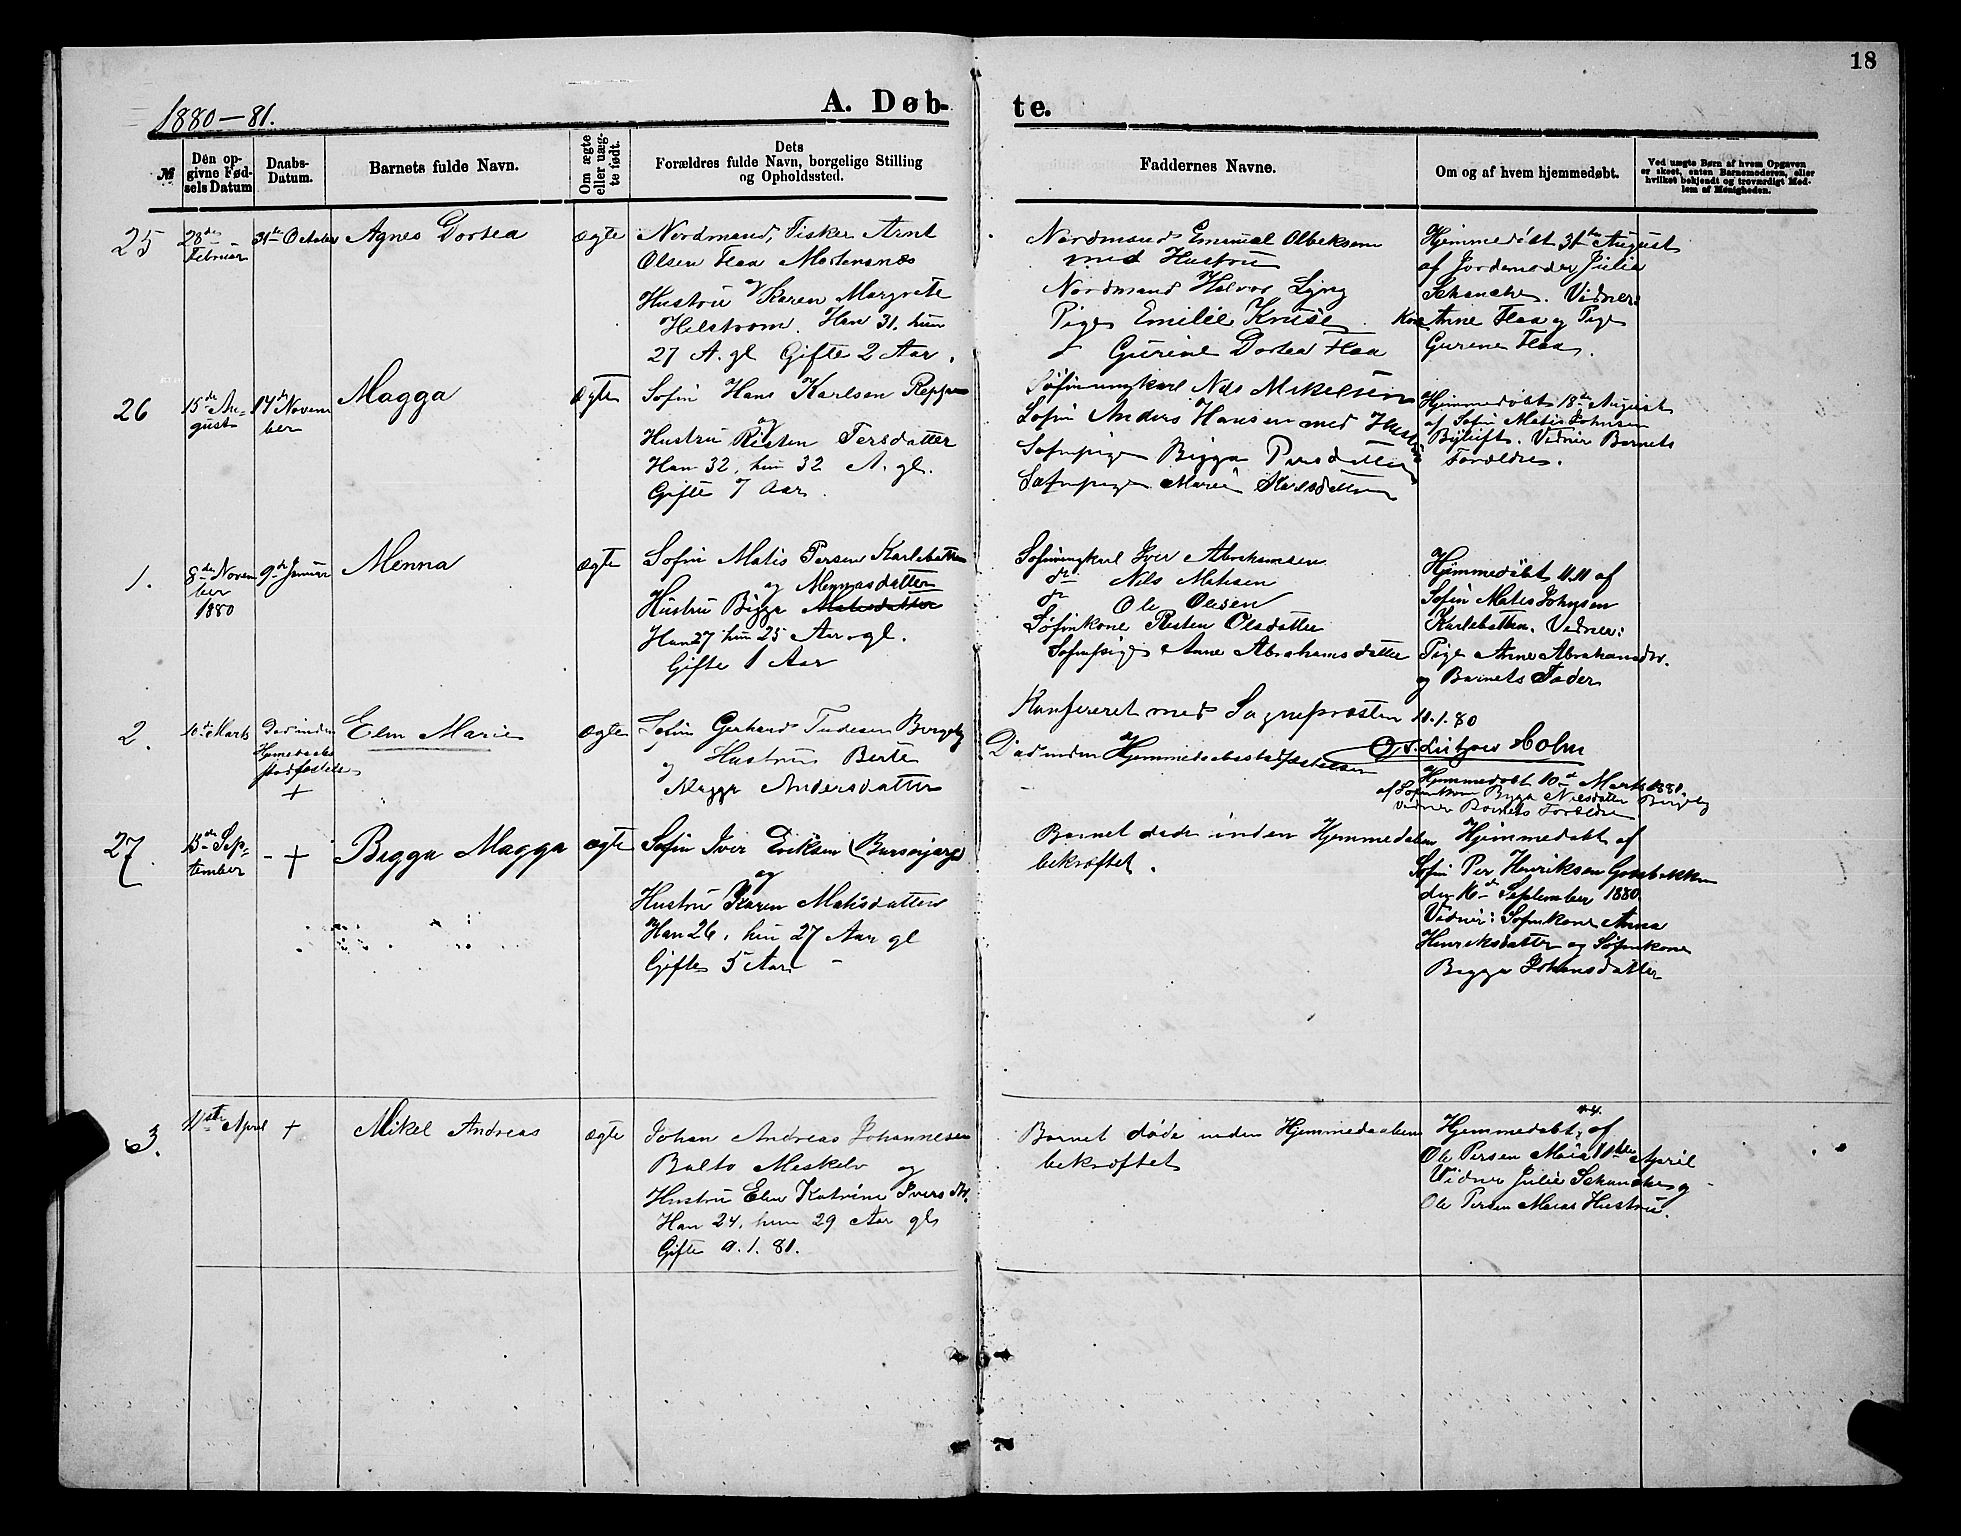 18
1880-81.
A. Døb-
te.
№
Den op-
givne Fød-
sels Datum
Daabs-
Datum.
Barnets fulde Navn.
Om ægte
eller uæg-
te født.
Dets
Forældres fulde Navn, borgelige Stilling
og Opholdssted.
Faddernes Navne.
Om og af hvem hjemmedøbt.
Ved uægte Børn af hvem Opgaven
er skeet, enten Barnemoderen, eller
hvilket bekjendt og troværdigt Med-
lem af Menigheden.
25
28de
Februar
31te October
Agnes Dortea
ægte
Nordmand, Fisker Arnt
Olsen Flaa Mortensnes
og
Hustru Karen Margrete
Helstrøm. Han 31, hun
27 A. gl Gifte 2 Aar.
Nordmand Emanuel Olbeksen
med Hustru
Nordmand Halvor Lyng
Pige Emilie Kruse.
Gurine Dortea Flaa
Hjemmedøbt 31te August
af Jordemoder Julie
Schanche. Vidner:
Kone Anne Flaa og Pige
Gurine Flaa.
26
15de Au-
gust
14de Novem
ber
Magga
ægte
Søfin Hans Karlsen Reppen
og
Hustru Risten Persdatter
Han 32, hun 32 A. gl.
Gifte 7 Aar.
Søfinungkarl Nils Mikelsen
Søfin Anders Hansen med Hustru
Søfinpige Bigga Persdatter
Søfinpige Marie Karlsdatter
Hjemmedøbt 18de August
af Søfin Matis Johnsen
Byluft. Vidner Barnets
Forældre.
1.
8de Novem
ber
1880
9de Januar
Menna
ægte
Søfin Matis Persen Karlebotten
og Mennasdatter
Hustru Bigga Matisdatter
Han 27 hun 25 Aar gl.
Gifte 1 Aar
Søfinungkarl Iver Abrahamsen
do Nils Matisen
do Ole Olesen
Søfinkone Risten Olsdatter
Søfinpige Anne Abrahamsdatter
Hjemmedøbt 11.11 af
Søfin Matis Johnsen
Karlebotten. Vidner:
Pige Anne Abrahamsdtr.
og Barnets Fader
Konfereret med Sognepræsten 11.1.80
Lützow Holm
2.
10de Marts
Død inden
Hjemmedaabs
stadfæstelse
+
Elen Marie
ægte
Søfin Gerhard Tudesen Bergeby
og Hustru Berte
Magga Andersdatter
Død inden Hjemmedaabsstadfæstelsen
Hjemmedøbt 10de Marts 1881
af Søfinkone Bigga Nilsdatter Bergeby
Vidner Barnets Forældre
27.
15de Sep-
tember
- +
Bigga Magga
ægte
Søfin Iver Eriksen (Bursnjarg)
og
Hustru Karen Matisdatter
Han 26, hun 27 Aar gl
Gifte 5 Aar. -
Barnet døde inden Hjemmedaaben
bekræftet.
Hjemmedøbt af
Søfin Per Henriksen
den 16de September 1880.
Vidner: Søfinkone Anna
Henriksdatter og Søfinkone
Bigga Johansdatter
3.
11ste April
+
Mikel Andreas
ægte
Johan Andreas Johannesen
Balto Meskelv og
Hustru Elen Katrine Iversdtr.
Han 24, hun 29 Aar gl
Gifte 9.1.81.
Barnet døde inden Hjemmedaaben
bekræftet
Hjemmedøbt af
Ole Persen April
Vidner Julie Schanche og
Ole Persen Hustru.